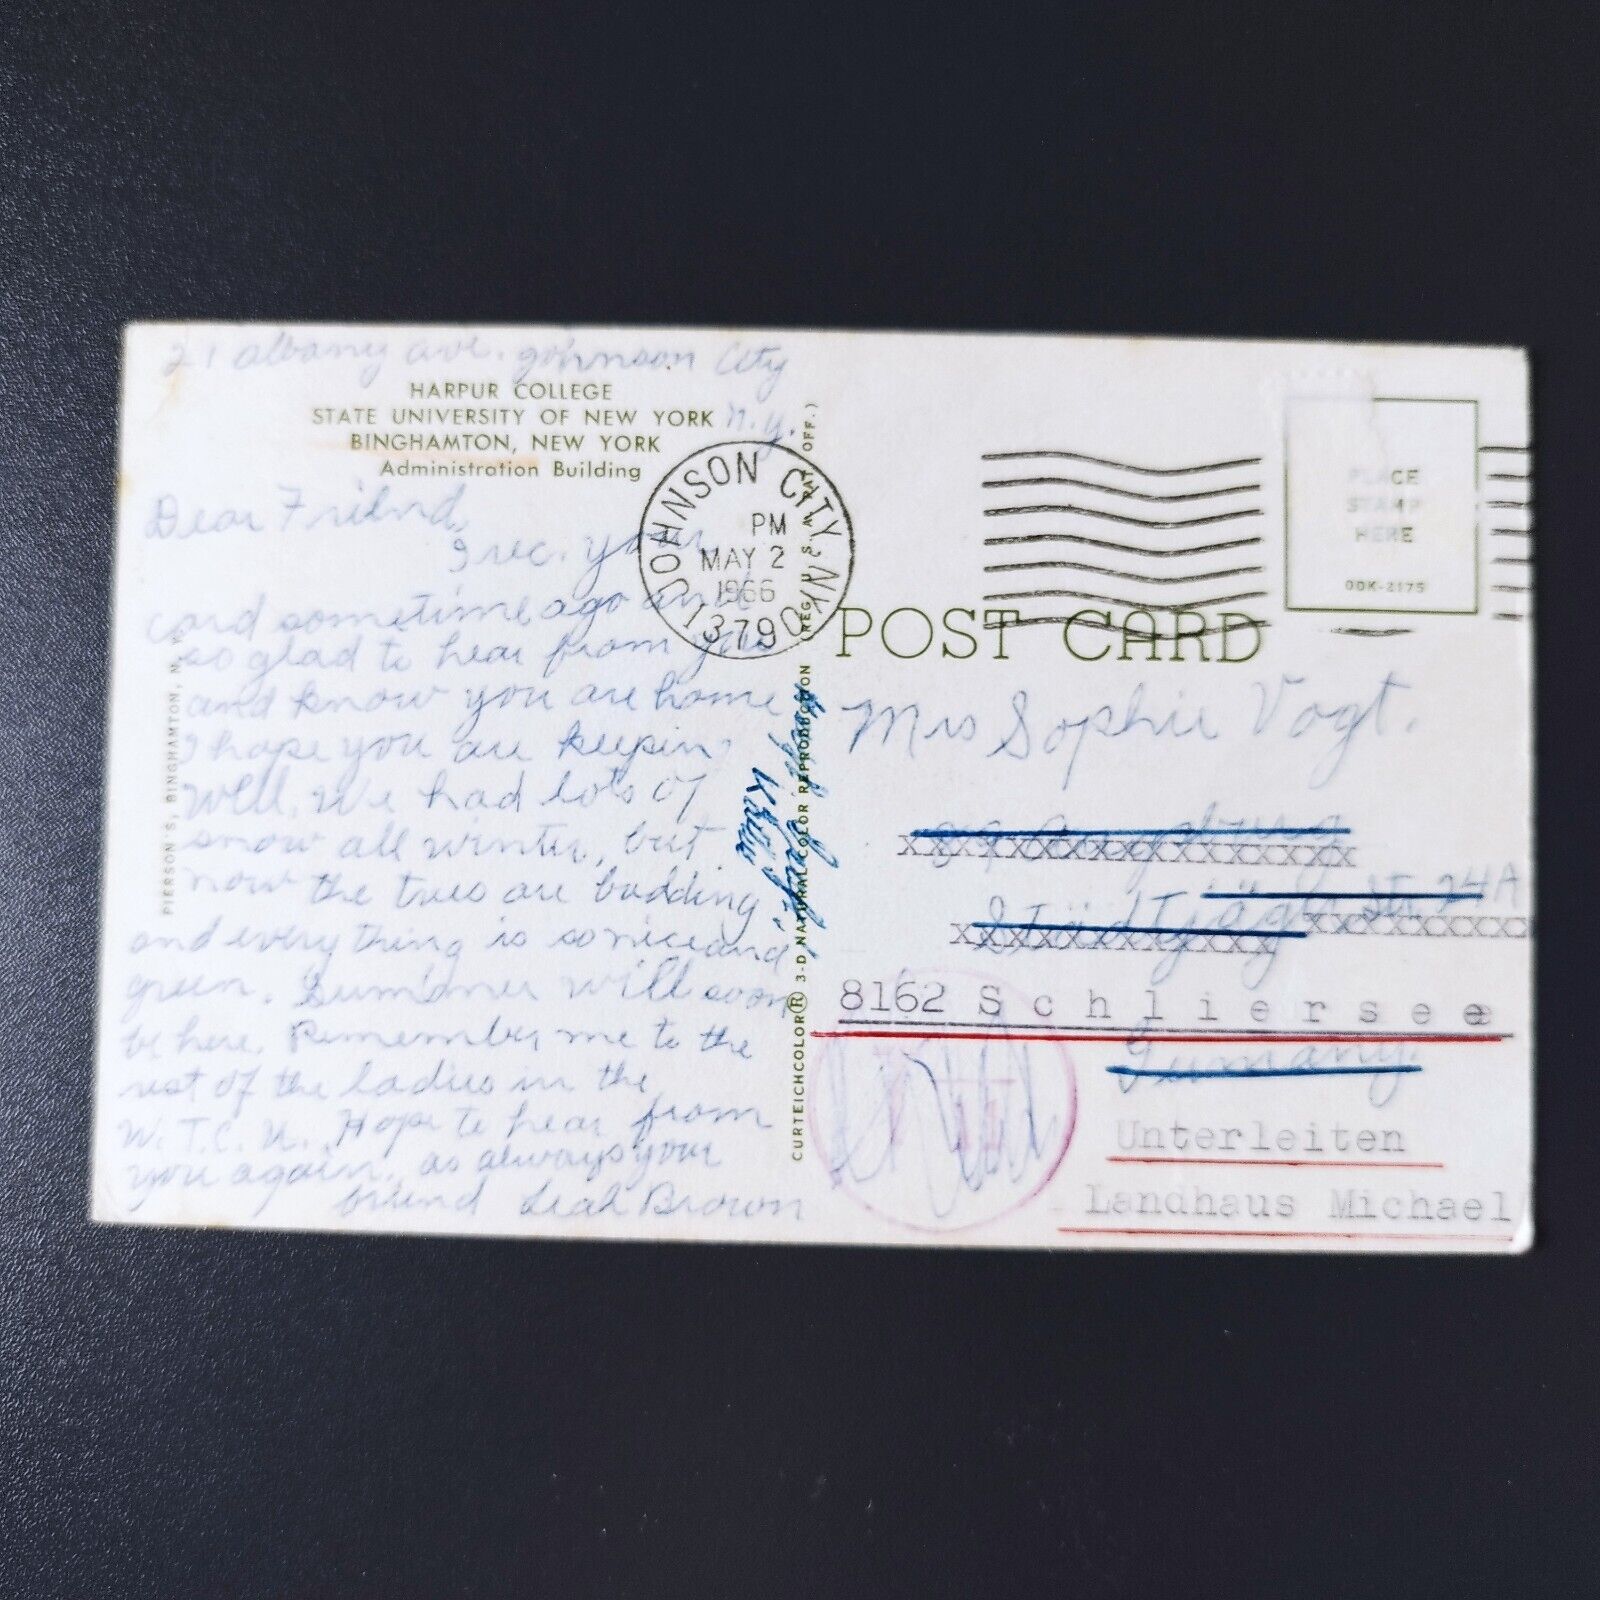 21 albany ave. Johnson City
N.Y.
HARPUR COLLEGE
STATE UNIVERSITY OF NEW YORK
BINGHAMTON, NEW YORK
Administration Building
Dear Friend,
I rec. your
card sometime ago and
so glad to hear from you
and know you are home
I hope you are keeping
well. We had lots of
snow all winter, but
now the trees are budding
and everything is so nice and
green. Summer will soon
be here. Remember me to the
rest of the ladies in the
W.T.C.U. Hope to hear from
you again, as always your
friend Leah Brown
PIERSON'S, BINGHAMTON, N. Y.
CURTEICHCOLOR® 3-D NATURAL COLOR REPRODUCTION (REG. U. S. PAT. OFF.)
JOHNSON CITY, N.Y.
PM
MAY 2
1966
13790
PLACE
STAMP
HERE
ODK-2175
POST CARD
Mrs Sophie Vogt.
89 Augsburg
xxxxxxxxxxxxxxxxxxx
Str 24A
8162 Schliersee
Germany.
Unterleiten
Landhaus Michael